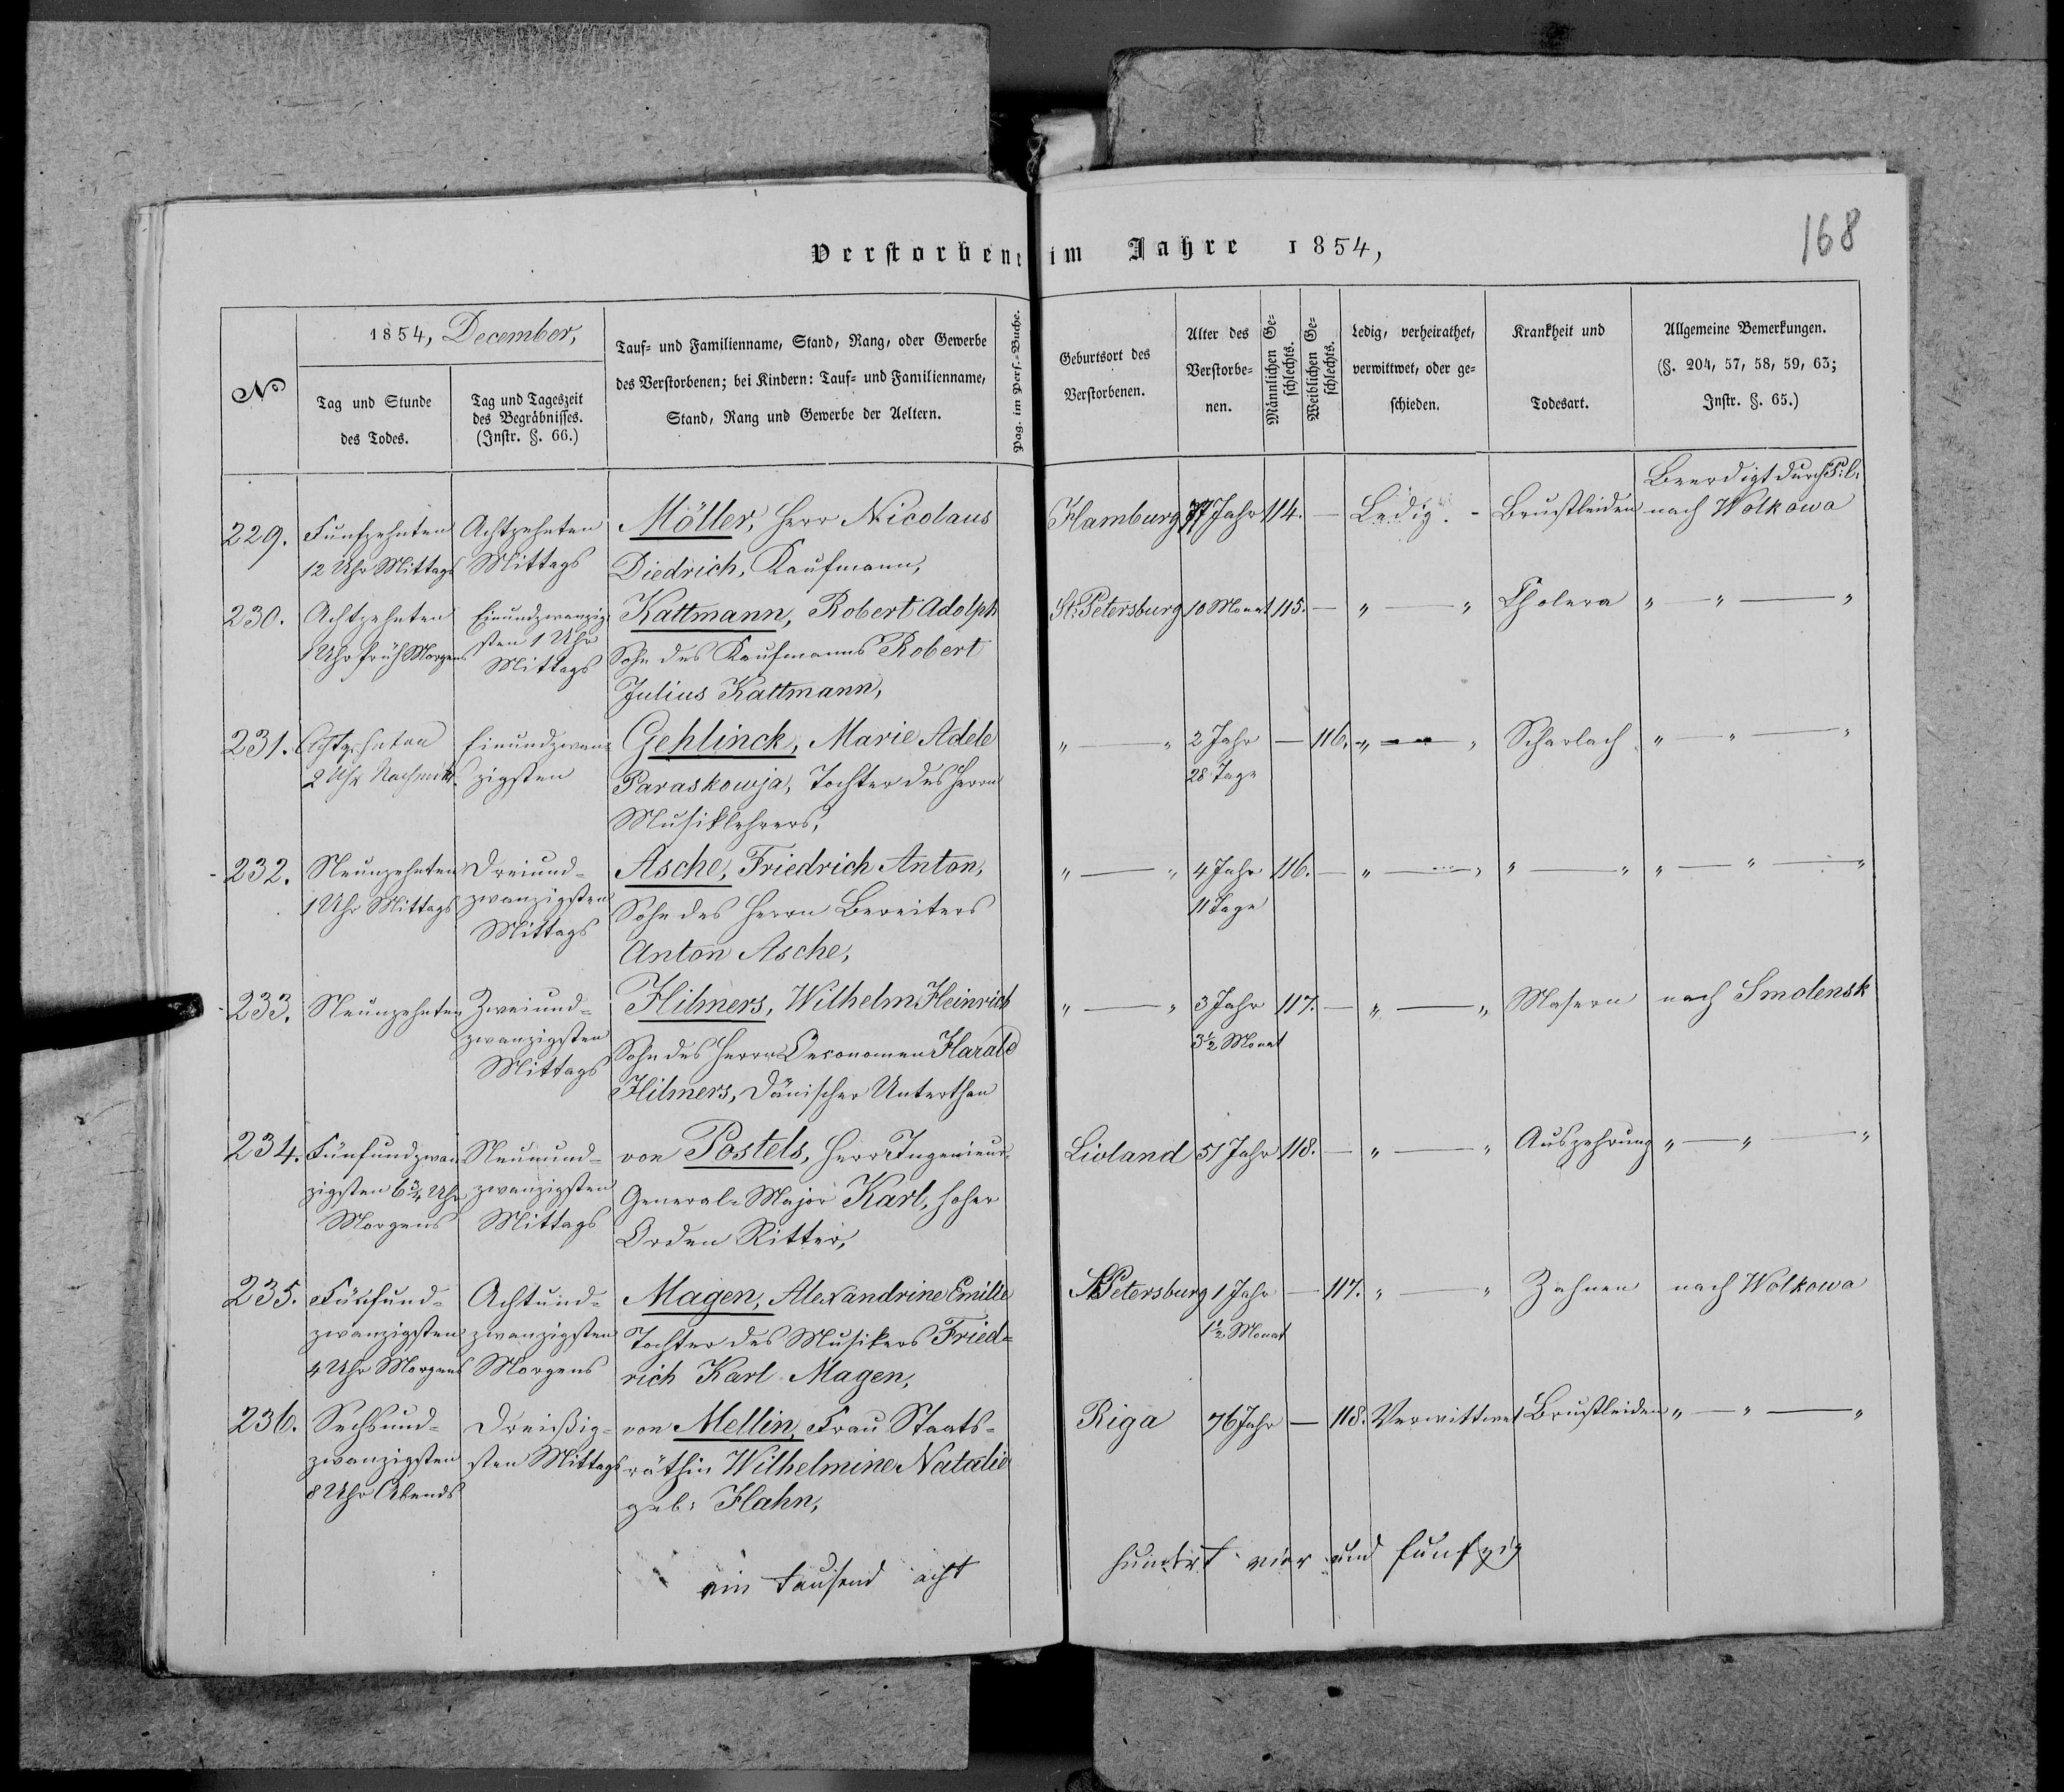 168
Verstorbene im Jahre 1854,
No
1854, December,
Tag und Stunde
des Todes.
Tag und Tageszeit
des Begräbnisses.
(Instr. §. 66.)
Tauf- und Familienname, Stand, Rang, oder Gewerbe
des Verstorbenen; bei Kindern: Tauf- und Familienname,
Stand, Rang und Gewerbe der Aeltern.
Pag. im Pers.-Buche.
Geburtsort des
Verstorbenen.
Alter des
Verstorbe-
nen.
Männlichen Ge-
schlechts.
Weiblichen Ge-
schlechts.
Ledig, verheirathet,
verwittwet, oder ge-
schieden.
Krankheit und
Todesart.
Allgemeine Bemerkungen.
(§. 204, 57, 58, 59, 63;
Instr. §. 65.)
229.
Funfzehnten
12 Uhr Mittags
Achtzehnten
Mittags
Möller, Herr Nicolaus
Diedrich, Kaufmann,
Hamburg
77 Jahr
114.
—
Ledig. -
Brustleiden
Beerdigt durch
nach Wolkowa
230.
Achtzehnten
1 Uhr früh Morgens
Einundzwanzig-
sten 1 Uhr
Mittags
Kattmann, Robert Adolph
Sohn des Kaufmanns Robert
Julius Kattmann,
St. Petersburg
10 Monat
115.
—
" — "
Cholera
" — " — "
231.
Achtzehnten
2 Uhr Nachmitt.
Einundzwan-
zigsten
Gehlinck, Marie Adele
Paraskowja, Tochter des Herrn
Musiklehrers,
" — "
2 Jahr
28 Tage
—
116.
" — "
Scharlach
" — " — "
232.
Neunzehnten
1 Uhr Mittags
Dreiund-
zwanzigsten
Mittags
Asche, Friedrich Anton,
Sohn des Herrn Bereiters
Anton Asche,
" — "
4 Jahr
11 Tage
116.
—
" — "
" — "
" — " — "
233.
Neunzehnten
Zweiund-
zwanzigsten
Mittags
Hilmers, Wilhelm Heinrich
Sohn des Herrn Oeconomen Harald
Hilmers, Dänischer Unterthan
" — "
3 Jahr
3½ Monat
117.
—
" — "
Masern
nach Smolensk
234.
Fünfundzwan-
zigsten 6¾ Uhr
Morgens
Neunund-
zwanzigsten
Mittags
von Postels, Herr Ingenieur-
General-Major Karl, hoher
Orden Ritter,
Livland
51 Jahr
118.
—
" — "
Auszehrung
" — " — "
235.
Fünfund-
zwanzigsten
4 Uhr Morgens
Achtund-
zwanzigsten
Morgens
Magen, Alexandrine Emilie
Tochter des Musikers Fried-
rich Karl Magen,
St. Petersburg
1 Jahr
1½ Monat
—
117.
" — "
Zahnen
nach Wolkowa
236.
Sechsund-
zwanzigsten
8 Uhr Abends
Dreißig-
sten Mittags
von Mellin, Frau Staats-
räthin Wilhelmine Natalie
geb: Hahn,
Riga
76 Jahr
—
118.
Verwittwet
Brustleiden
" — " — "
ein tausend acht hundert vier und funfzig